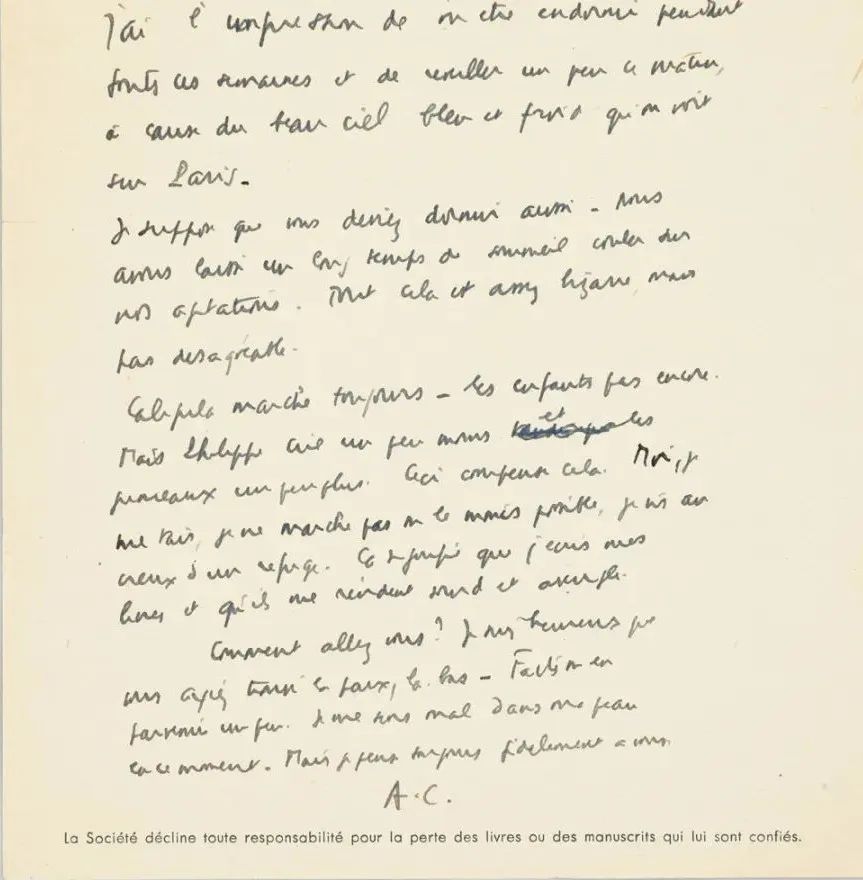 J'ai l'impression de m'être endormi pendant
toutes ces semaines et de réveiller un peu ce matin,
à cause du beau ciel bleu et froid qu'on voit
sur Paris.
Je suppose que vous deviez dormir aussi - nous
avons laissé un long temps de sommeil couler sur
nos agitations. Tout cela est assez bizarre, mais
pas désagréable.
Caligula marche toujours - les enfants pas encore.
Mais Philippe crie un peu moins et les
jumeaux un peu plus. Ceci compense cela. Moi, je
me tais, je ne marche pas ou le moins possible, je vis au
creux d'un refuge. Ça signifie que j'écris mes
livres et qu'ils me rendent sourd et aveugle.
Comment allez vous? Je suis heureux que
vous ayez trouvé la paix, là-bas - Faites m'en
parvenir un peu. Je me sens mal dans ma peau
en ce moment. Mais je pense toujours fidèlement à vous.
A.C.
La Société décline toute responsabilité pour la perte des livres ou des manuscrits qui lui sont confiés.